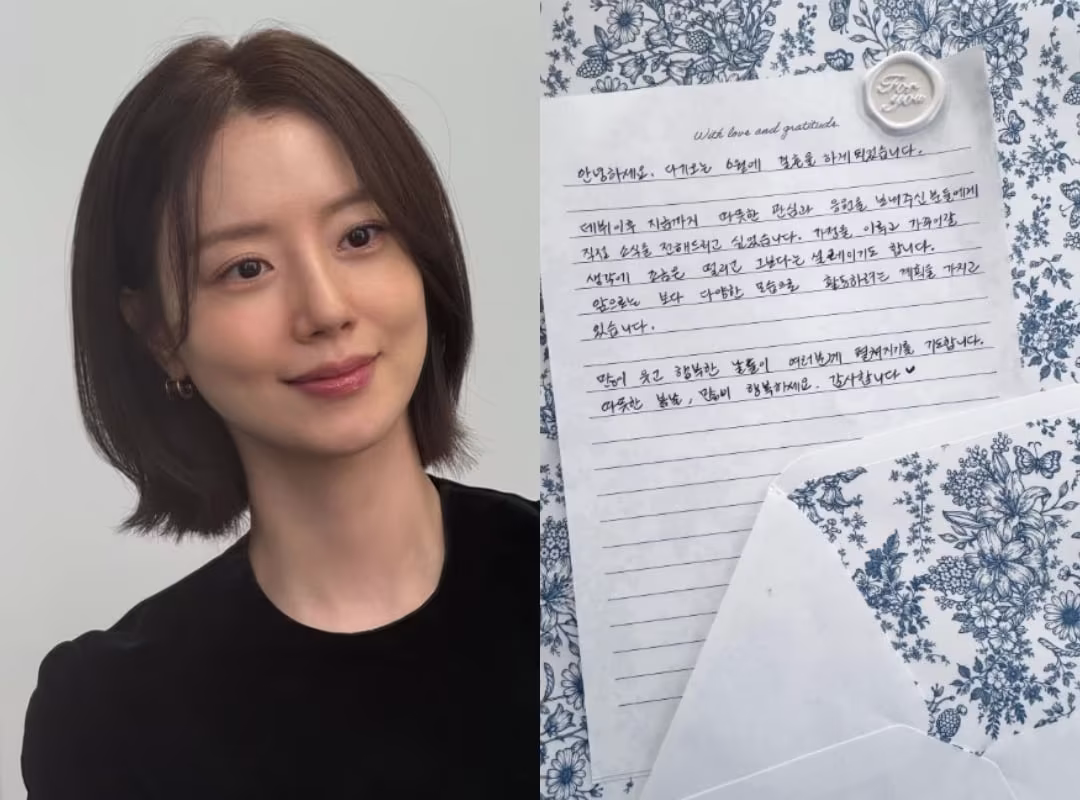 For you
With love and gratitude
안녕하세요. 다가오는 6월에 결혼을 하게 되었습니다.
데뷔이후 지금까지 따뜻한 관심과 응원을 보내주신 분들에게
직접 소식을 전해드리고 싶었습니다. 가정을 이루고 가족이랄
생각에 조금은 떨리고 그보다는 설레이기도 합니다.
앞으로는 보다 다양한 모습으로 활동하려는 계획을 가지고
있습니다.
많이 웃고 행복한 날들이 여러분께 펼쳐지기를 기도합니다.
따뜻한 봄날, 많이 행복하세요. 감사합니다 ♥